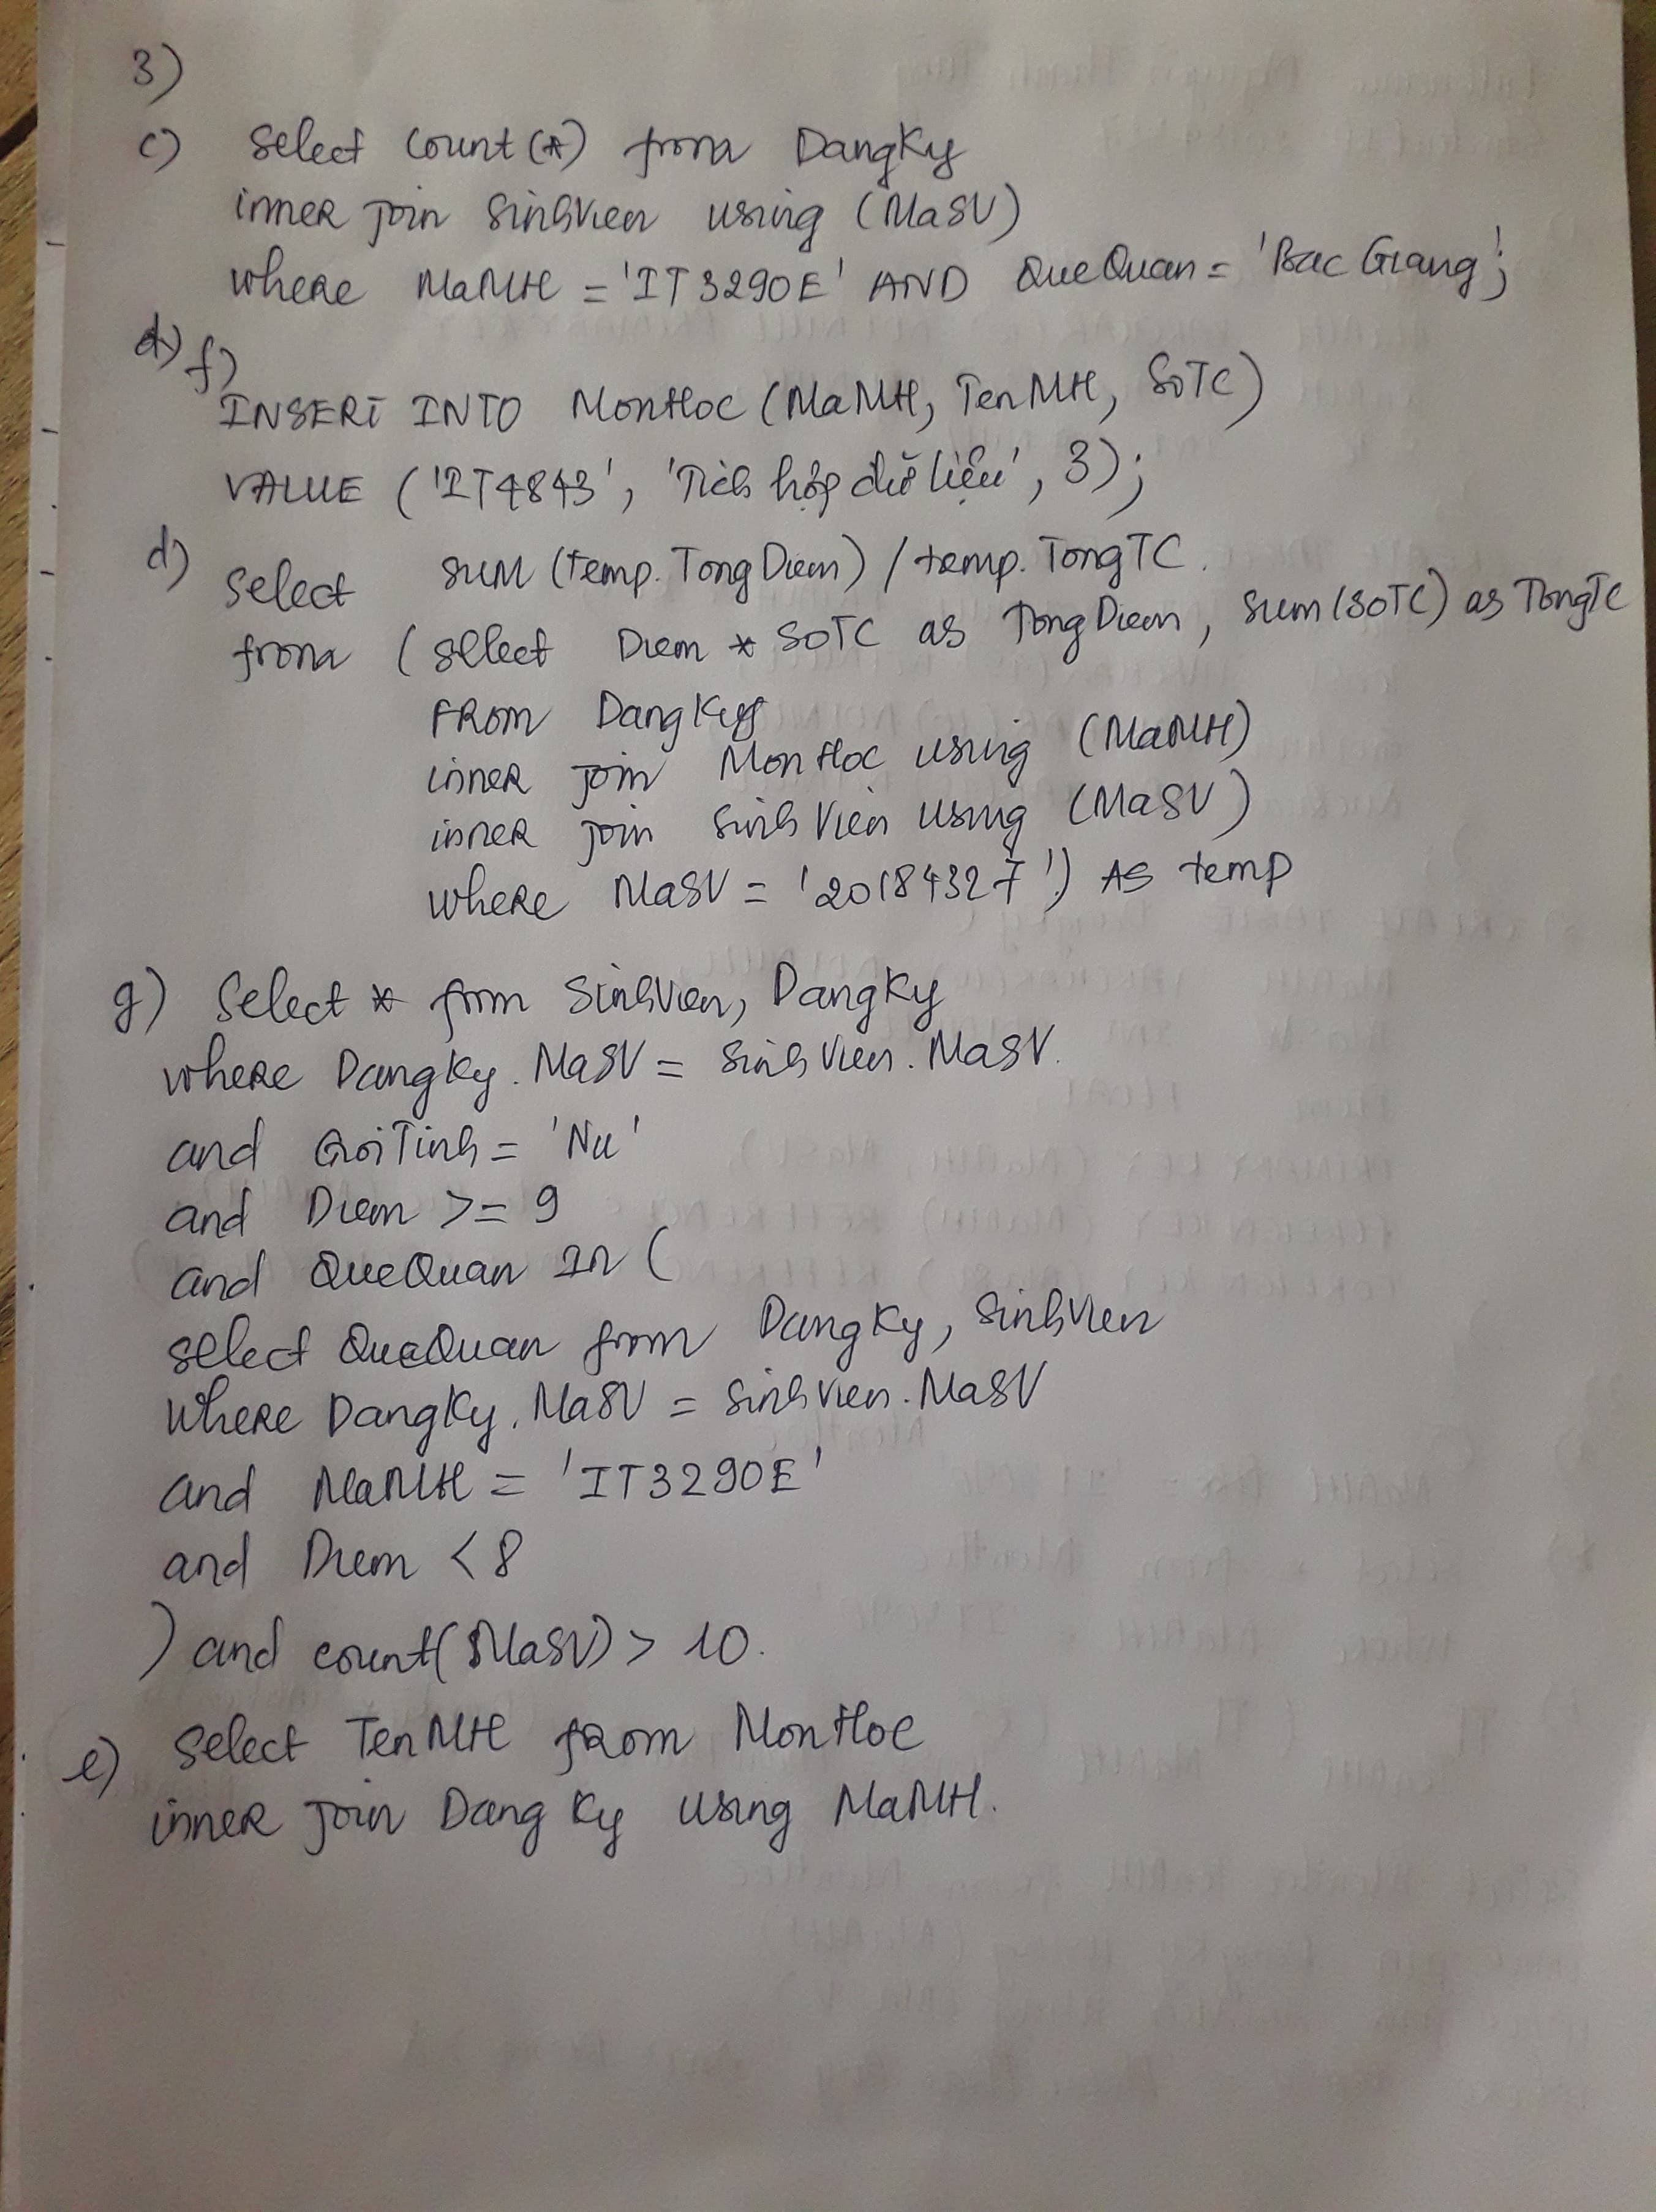 3)
c) Select Count(*) from DangKy
inner join SinhVien using (MaSV)
where MaMH = 'IT3290E' AND QueQuan = 'Bac Giang';
f)
INSERT INTO MonHoc (MaMH, TenMH, SoTC)
VALUE ('IT4843', 'Tích hợp dữ liệu', 3);
d) Select SUM (temp.TongDiem) / temp.TongTC.
from (select Diem * SoTC as TongDiem, sum(SoTC) as TongTC
FROM DangKy
inner join MonHoc using (MaMH)
inner join SinhVien using (MaSV)
where MaSV = '20184327') AS temp
g) Select * from SinhVien, DangKy
where DangKy.MaSV = SinhVien.MaSV.
and GioiTinh = 'Nu'
and Diem >= 9
and QueQuan In (
select QueQuan from DangKy, SinhVien
Where DangKy.MaSV = SinhVien.MaSV
and MaMH = 'IT3290E'
and Diem < 8
) and count(MaSV) > 10.
e) Select TenMH from MonHoc
inner join DangKy using MaMH.